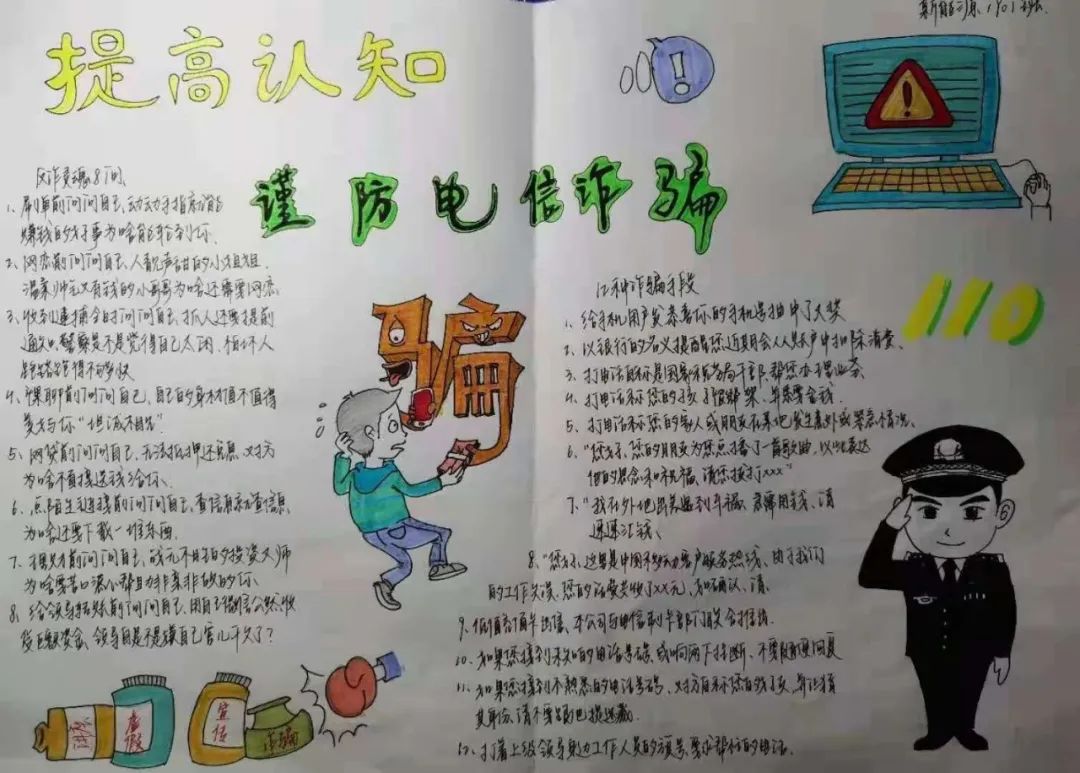 提高认知
谨防电信诈骗
反诈灵魂8问
1、刷单前问问自己、动动手指就能
赚钱的好事为啥能轮到你.
2、网恋前问问自己、人靓声甜的小姐姐.
温柔帅气又有钱的小哥哥为啥还需要网恋
3、收到逮捕令时问问自己、抓人还要提前
通知.警察是不是觉得自己太闲、怕坏人
跑得不够快
4、裸聊前问问自己、自己的身材值不值得
美女与你“坦诚相见”
5、网贷前问问自己、无法抵押还免息、对方
为啥不直接送钱给你、
6、点陌生链接前问问自己、查信息就查信息、
为啥还要下载一堆东西、
7、理财前问问自己、战无不胜的投资大师
为啥要苦口婆心帮助非亲非故的你、
8、给领导转账前问问自己、用自己账户
巨额资金、领导自是不是嫌自己官儿干久了？
虚假
宣传
诈骗
骗
110
12种诈骗手段
1、给手机用户发恭喜你的手机号抽中了大奖
2、以银行的名义提醒您近期会从账户中扣除消费、
3、打电话自称是国家税务局干部、帮您办理业务
4、打电话称您的孩子被绑架、单要拿钱
5、打电话称您的家人或朋友在某地发生意外或紧急情况、
6、“您好、您的朋友为您点播了一首歌曲、以此表达
他的思念和祝福、请您拨打xxx”
7、“我在外地出差遇到车祸、急需用钱、请
速速汇钱、
8、“您好、这里是中国移动客户服务热线、由于我们
的工作失误、您的话费共收了xx元、和确认、请
9、低价充值卡出售、本公司与电信制卡部门联合推销
10、如果您接到未知的电话号码、或响两下挂断、不要随便回复
11、如果您接到不熟悉的电话号码、对方自称您的好友、身让猜
其身份、请不要
12、打着上级领导或工作人员的旗号、要求帮忙的电话.